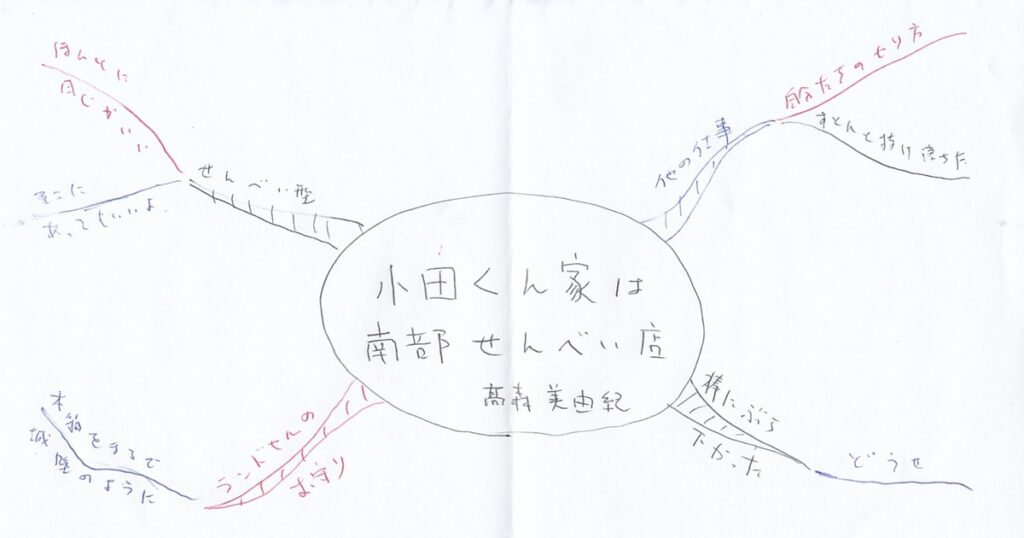 小田くん家は
南部せんべい店
髙森美由紀
せんべい型
ほんとに
感じがいい
あってもいいよ
他の仕事
自分たちのやり方
すとんと抜け落ちた
棒にぶら
下がった
どうせ
ランドせるの
お守り
本箱をまるで
城壁のように